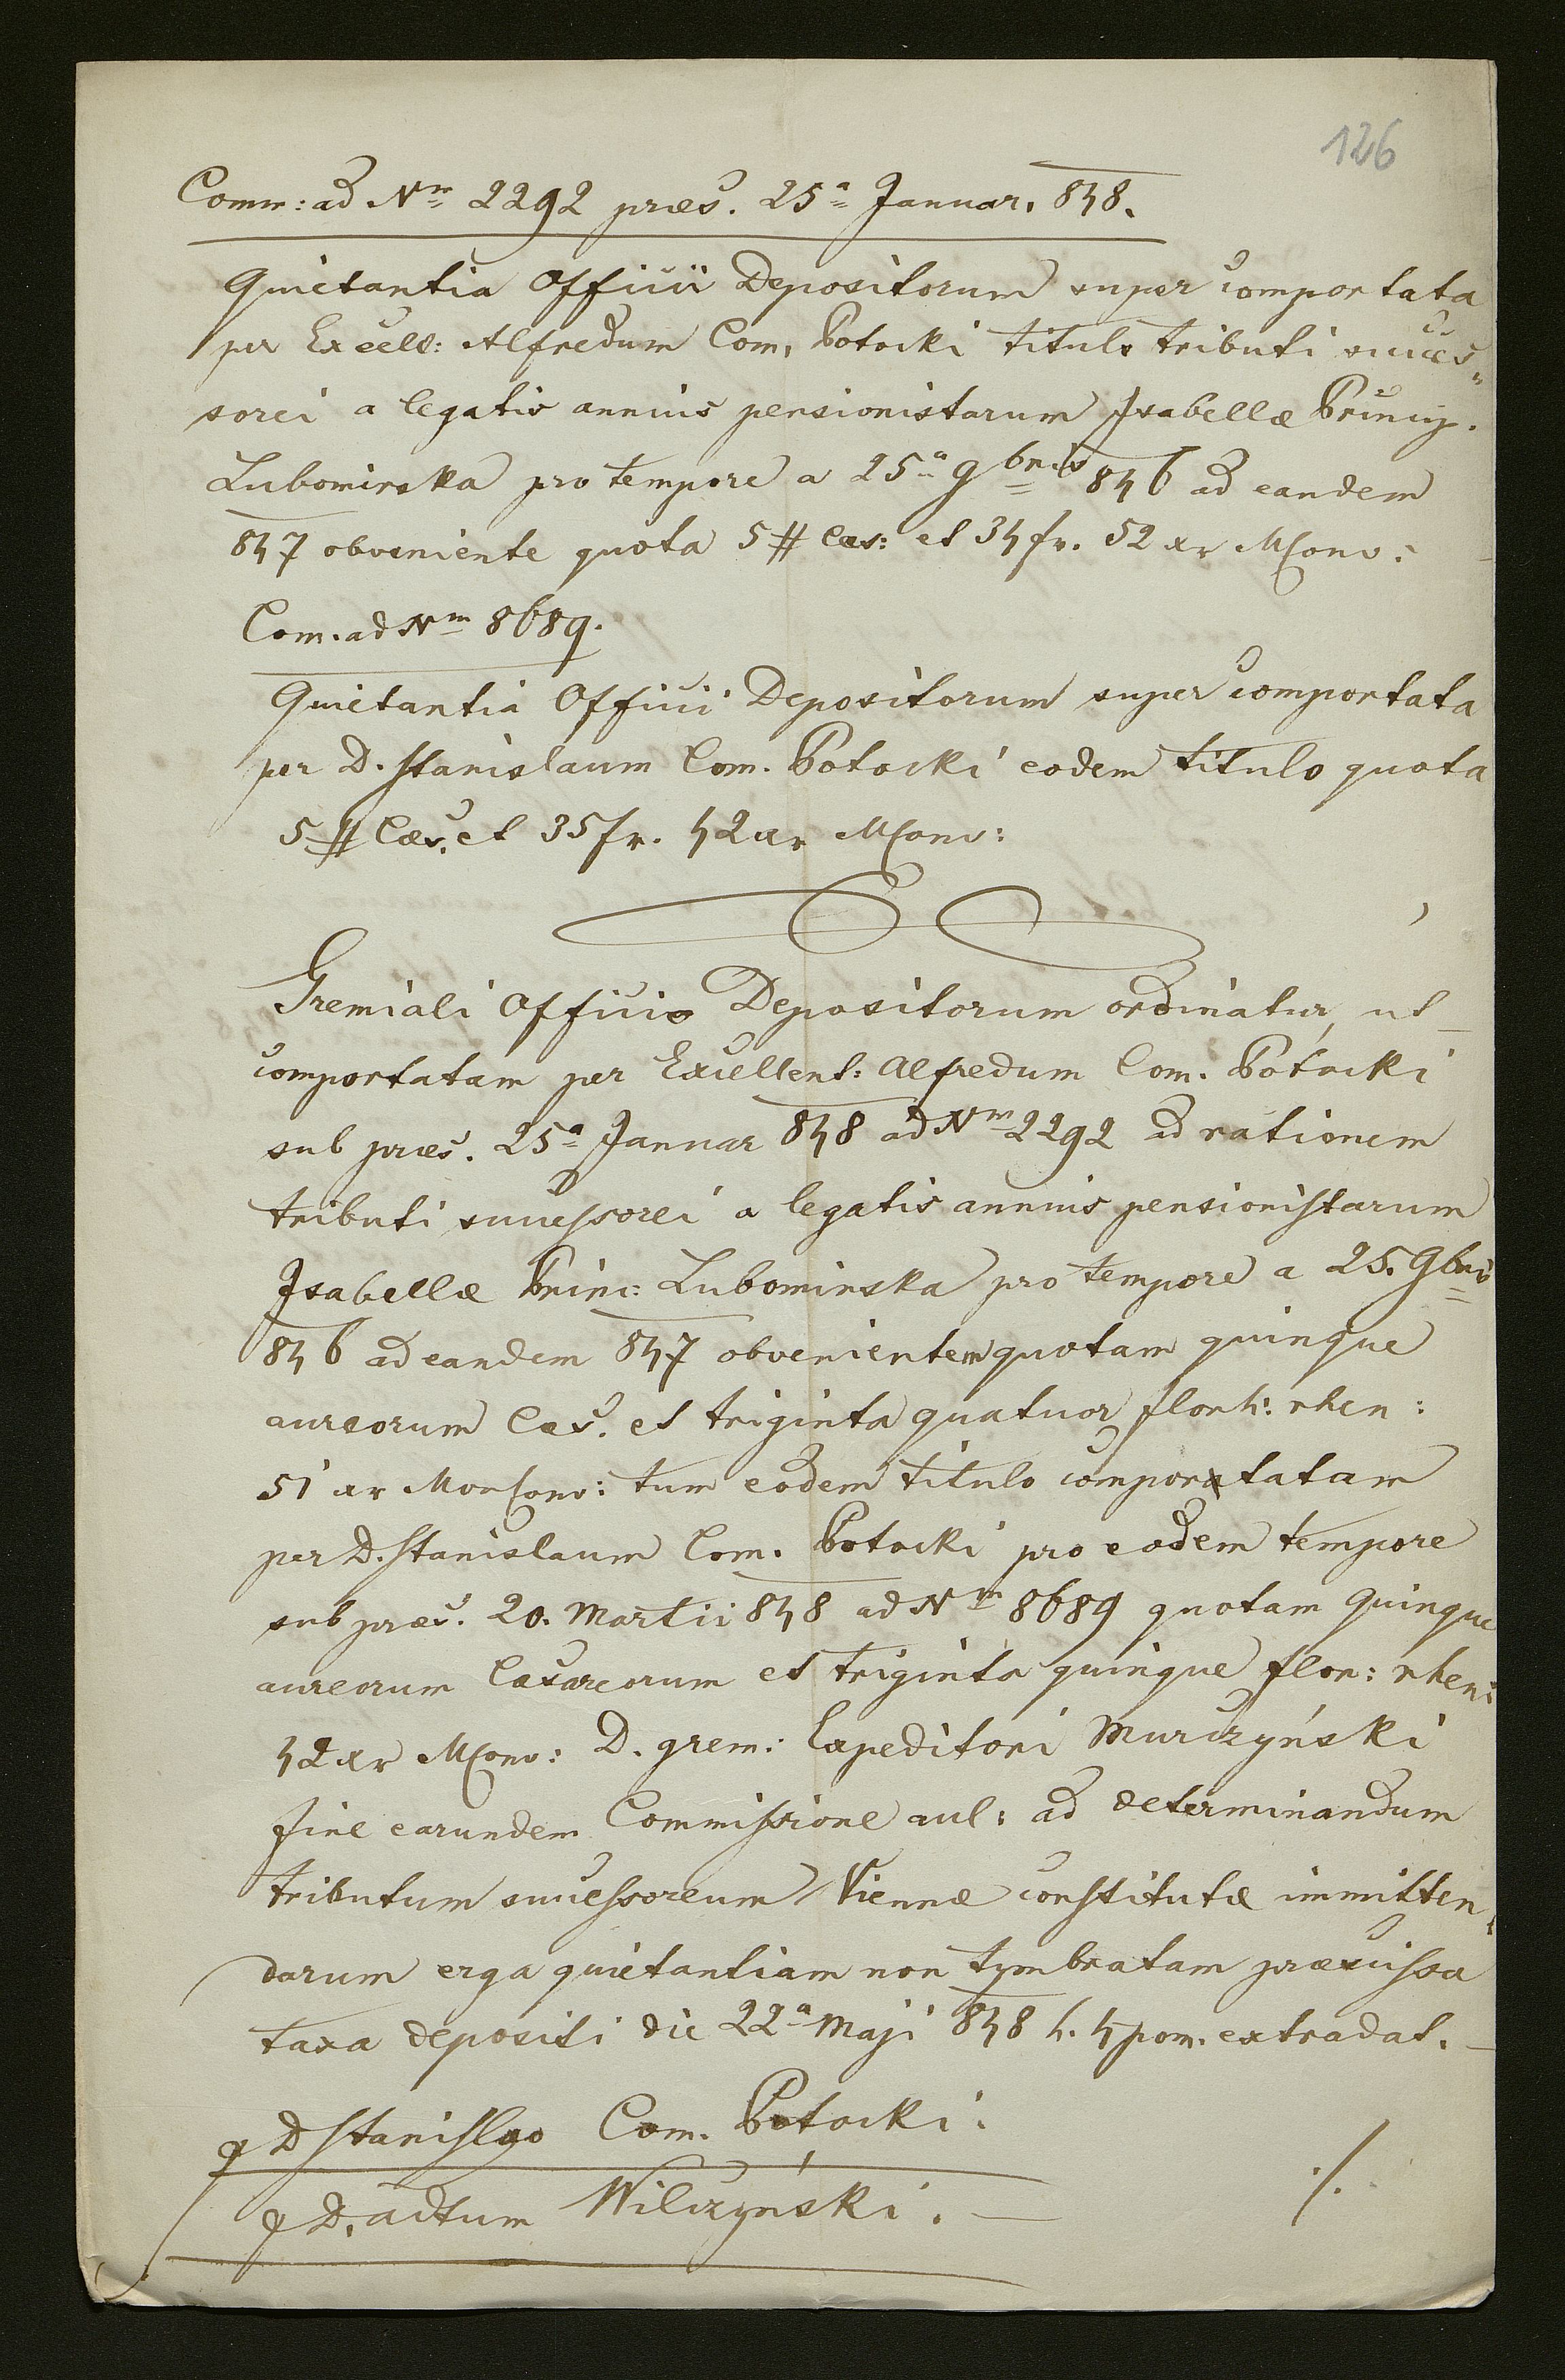 126
Comm: ad Nm 2292 præs. 25a Januar. 848.
Quietantia Officii Depositorum super comportata
per Excell: Alfredum Com. Potocki titulo tributi succes„
sorei a legatis annuis pensionistarum Isabellæ Princip.
Lubomirska pro tempore a 25a 9bris 846 ad eandem
847 obveniente quota 5 # Cæs: et 34 fr. 52 xr MConv:
Com. ad Nm 8689.
Quietantia Officii Depositorum super comportata
per D. Stanislaum Com. Potocki eodem titulo quota
5 # Cæs. et 35 fr. 42 xr MConv:
Gremiali Officio Depositorum ordinatur, ut
comportatam per Excellent: Alfredum Com. Potocki
sub præs. 25a Januar 848 ad Nm 2292 ad rationem
tributi successorei a legatis annuis pensionistarum
Isabellæ Princ: Lubomirska pro tempore a 25. 9bris
846 ad eandem 847 obvenientem quotam quinque
aureorum Cæs. et triginta quatuor flor: rhen:
51 xr MonConv: tum eodem titulo comportatam
per D. Stanislaum Com. Potocki pro eodem tempore
sub præs. 20. Martii 848 ad Nm 8689 quotam quinque
aureorum Cæsareorum et triginta quinque flor: rhen:
42 xr MConv: D. grem: Expeditori Murczyński
fine earundem Commissione aul: ad determinandum
tributum successoreum Viennæ constitutæ immitten„
darum erga quietantiam non tymbratam præcissa
taxa depositi die 22a Maji 848 h. 4 pom. extradat.
D Stanislao Com. Potocki.
D. adtum Wilczyński.
./.